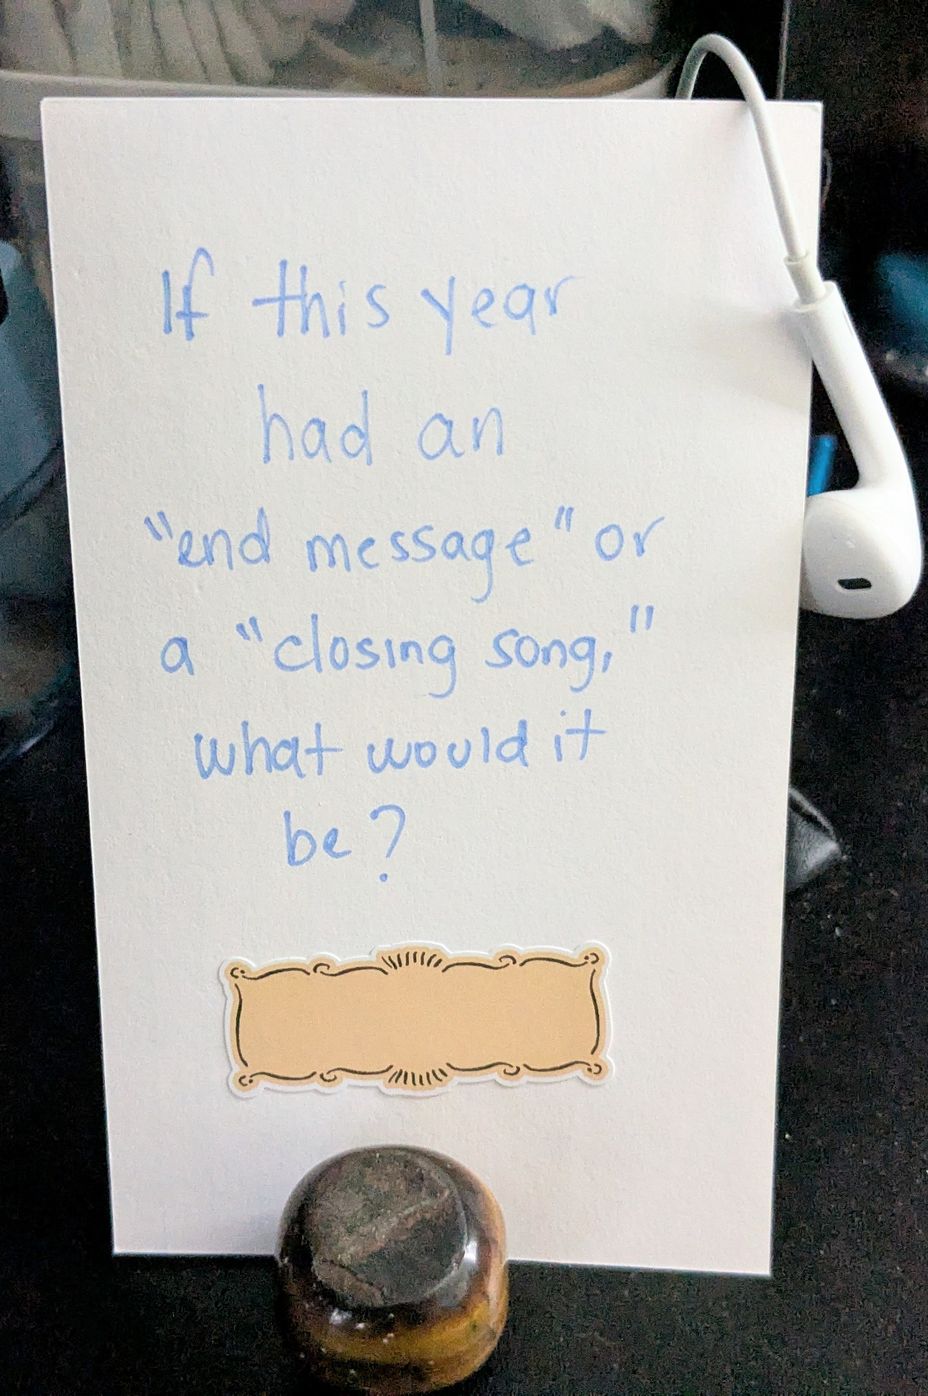 If this year
had an
"end message" or
a "closing song,"
what would it
be?